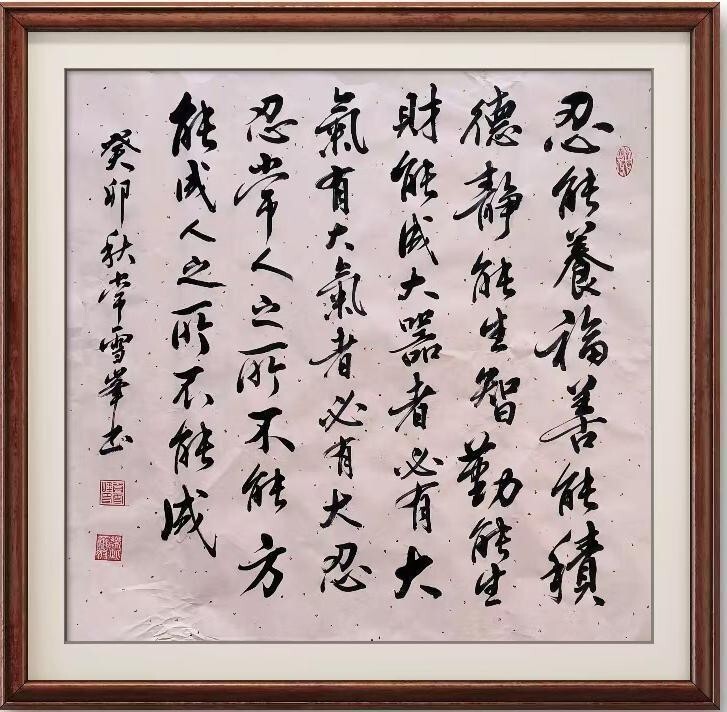 忍能養福善能積
德靜能生智勤能生
財能成大器者必有大
氣有大氣者必有大忍
忍常人之所不能方
能成人之所不能成
癸卯秋常雪峯书